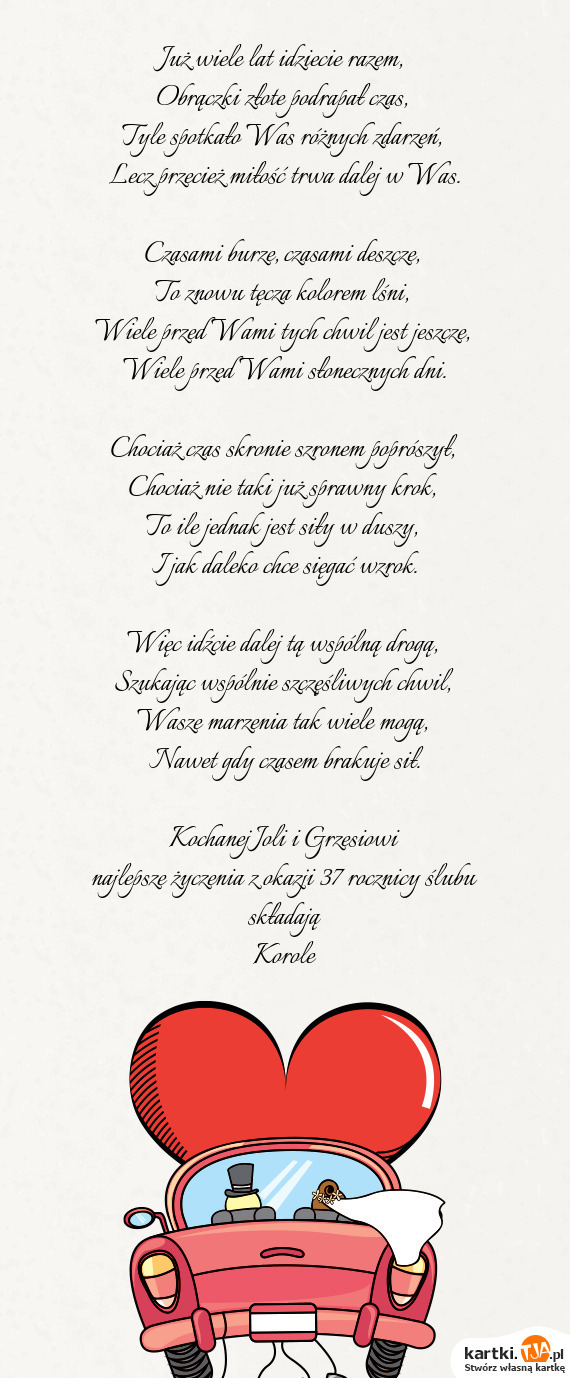 Już wiele lat idziecie razem,
Obrączki złote podrapał czas,
Tyle spotkało Was różnych zdarzeń,
Lecz przecież miłość trwa dalej w Was.

Czasami burze, czasami deszcze,
To znowu tęcza kolorem lśni,
Wiele przed Wami tych chwil jest jeszcze,
Wiele przed Wami słonecznych dni.

Chociaż czas skronie szronem poprószył,
Chociaż nie taki już sprawny krok,
To ile jednak jest siły w duszy,
I jak daleko chce sięgać wzrok.

Więc idźcie dalej tą wspólną drogą,
Szukając wspólnie szczęśliwych chwil,
Wasze marzenia tak wiele mogą,
Nawet gdy czasem brakuje sił.

Kochanej Joli i Grzesiowi
najlepsze życzenia z okazji 37 rocznicy ślubu
składają
Korole

kartki.TJA.pl
Stwórz własną kartkę